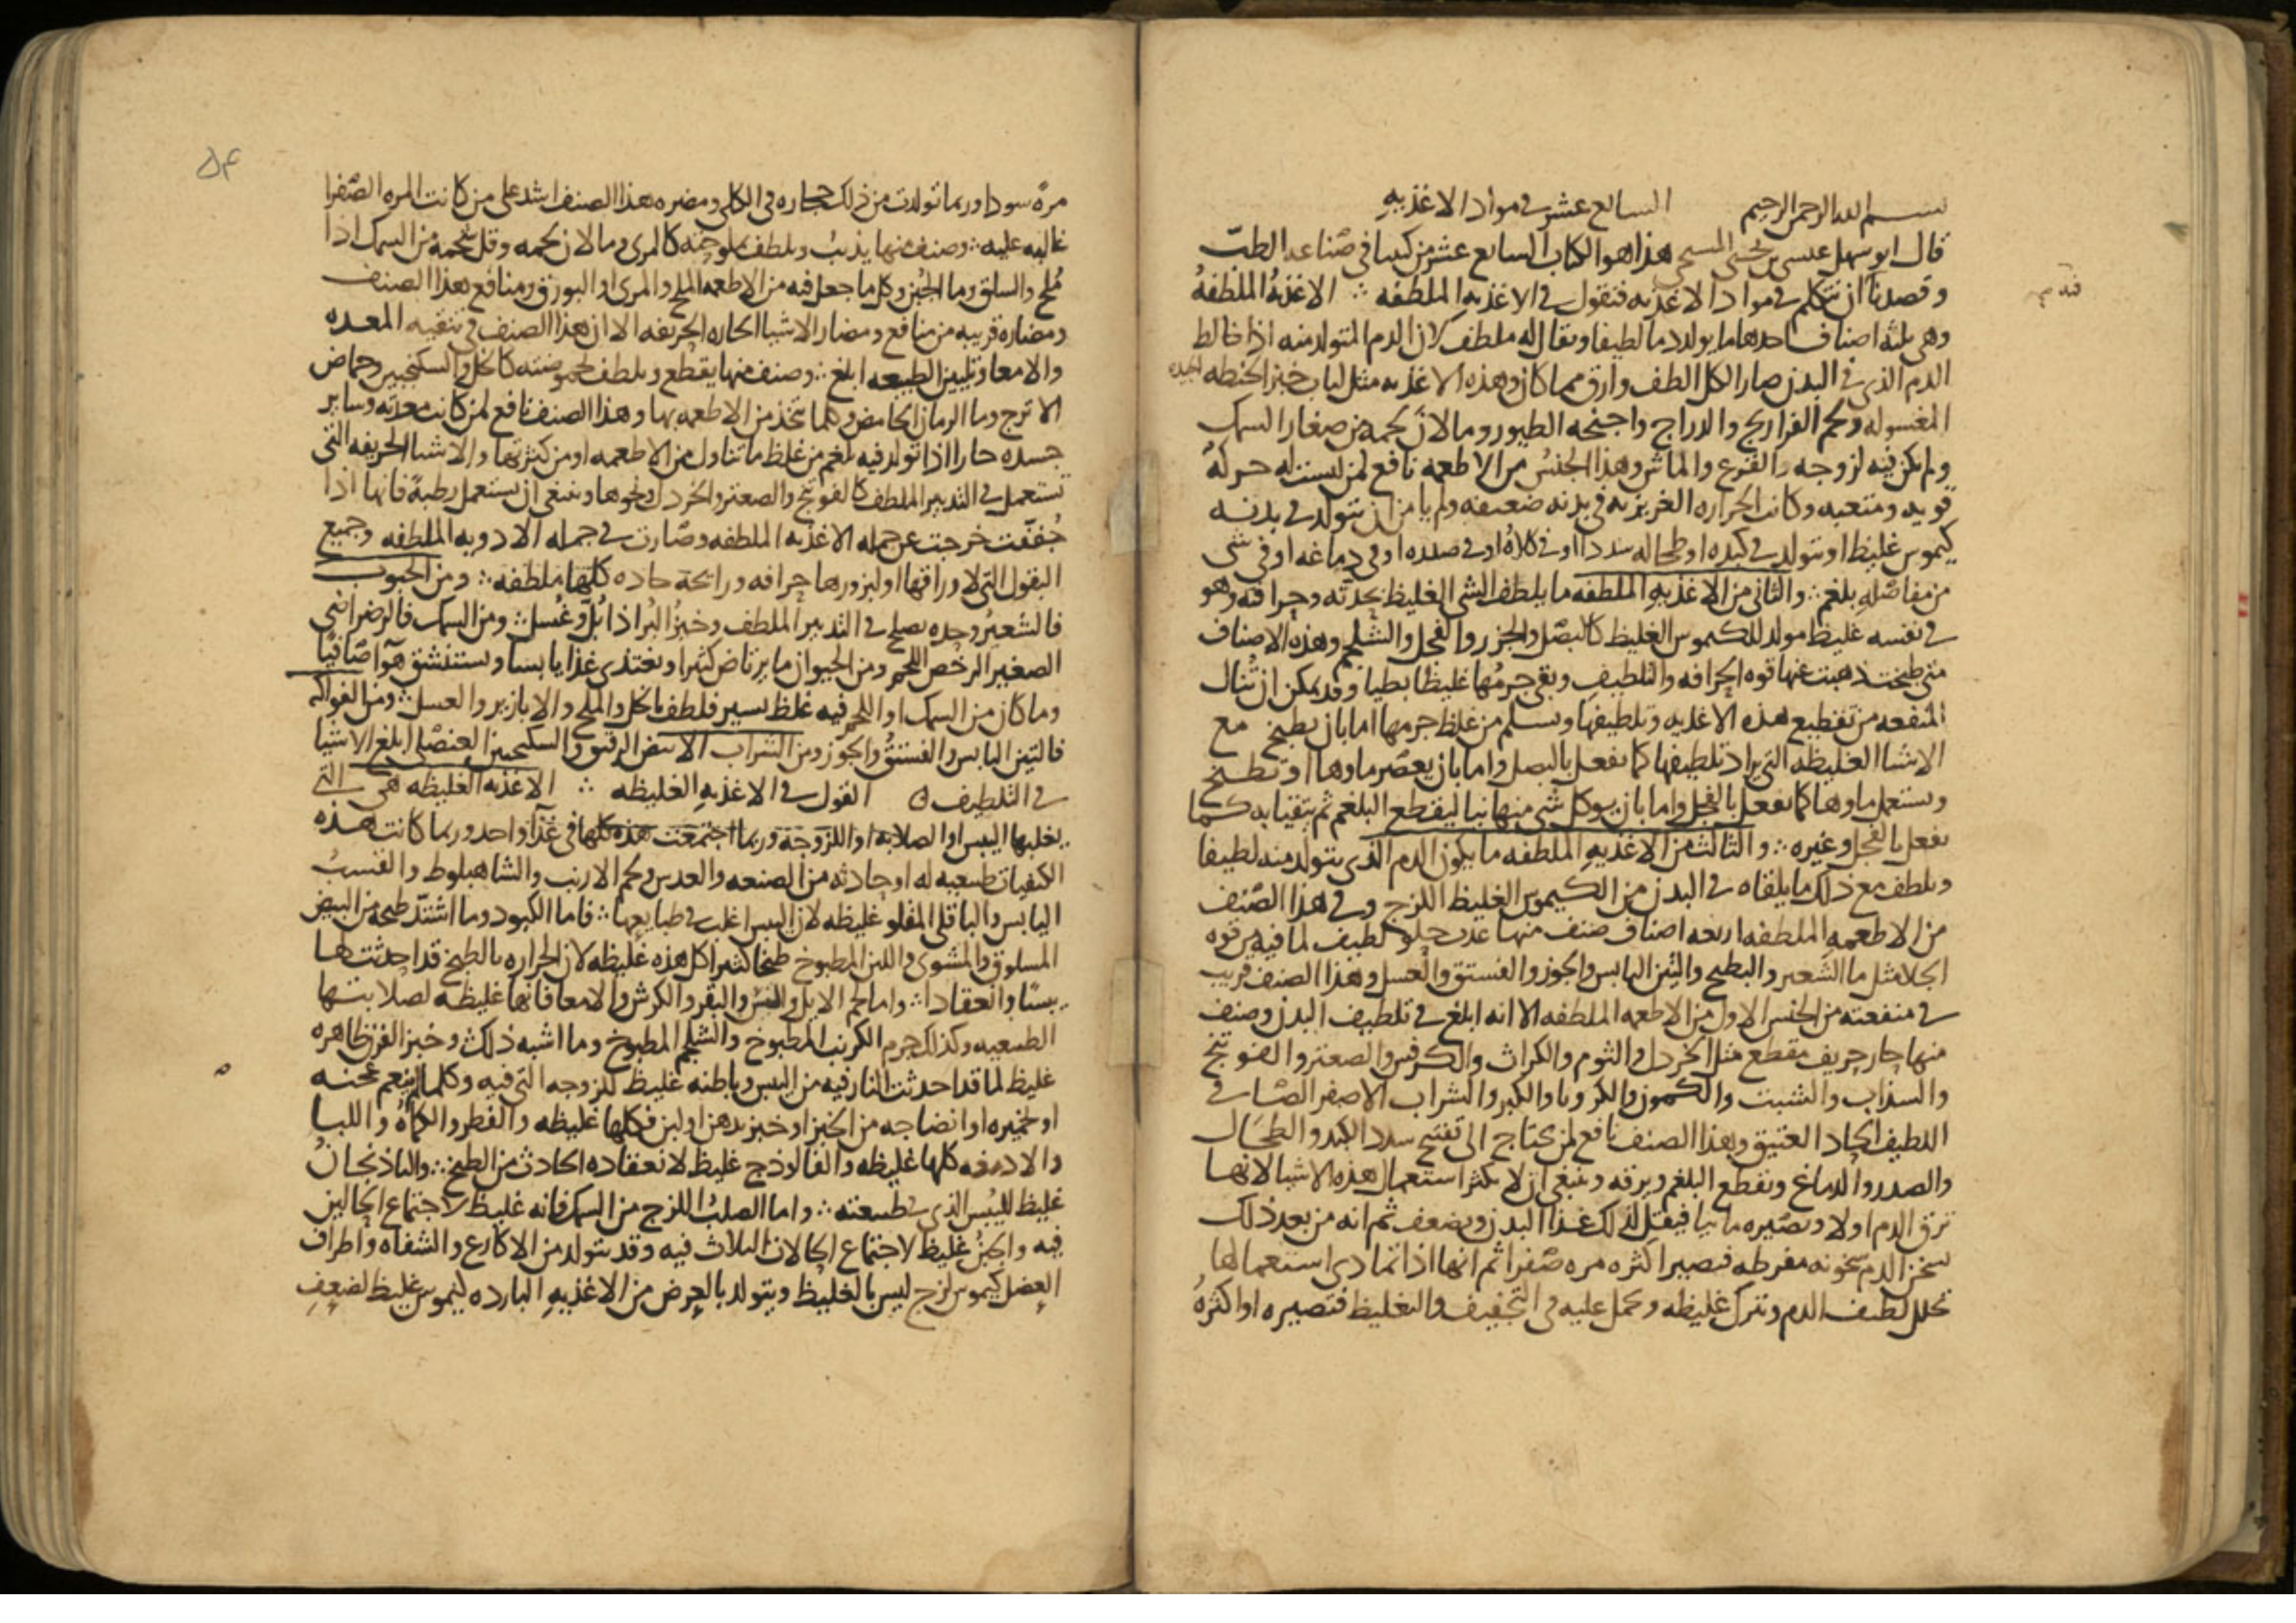 بسم الله الرحمن الرحيم السابع عشر في مواد الاغذيه
قال ابو سهل عيسى بن يحيى المسيحي هذا هو الكتاب السابع عشر من كتبنا في صناعه الطب
وقصدنا ان نتكلم في مواد الاغذيه فنقول في الاغذيه الملطفه ∴ الاغذيه الملطفه
وهي ثلثه اصناف احدها ما يولد دما لطيفا ويقال له ملطف لان الدم المتولد منه اذا خالط
الدم الذي في البدن صار الكل الطف وارق مما كان وهذه الاغذيه مثل لباب خبز الحنطه الجيده
المغسوله ولحم الفراريج والدراج واجنحه الطيور وما لان لحمه من صغار السمك
ولم يكن فيه لزوجه والقرع والماش وهذا الجنس من الاطعمه نافع لمن ليست له حركه
قويه ومتعبه وكانت الحراره الغريزيه في بدنه ضعيفه ولم يامن ان يتولد في بدنه
كيموس غليظ او يتولد في كبده او طحاله سدد او في كلاه او في صدره او في دماغه او في شي
من مفاصله بلغم ∴ والثاني من الاغذيه الملطفه ما يلطف الشي الغليظ بحدته وحرافته وهو
في نفسه غليظ مولد للكيموس الغليظ كالبصل والجزر والفجل والشلجم وهذه الاصناف
متى طبخت ذهبت عنها قوه الحرافه والتلطيف وبقي جرمها غليظا بطيا وقد يمكن ان تنال
المنفعه من تقطيع هذه الاغذيه وتلطيفها ويسلم من غلظ جرمها اما بان يطبخ مع
الاشيا الغليظه التي يراد تلطيفها كما يفعل بالبصل واما بان يعصر ماوها او تطبخ
ويستعمل ماوها كما يفعل بالفجل واما بان يوكل شي منها نيا ليقطع البلغم ثم يتقيا به كما
يفعل بالفجل وغيره ∴ والثالث من الاغذيه الملطفه ما يكون الدم الذي يتولد منه لطيفا
ويلطف مع ذلك ما يلقاه في البدن من الكيموس الغليظ اللزج وفي هذا الصنف
من الاطعمه الملطفه اربعه اصناف صنف منها عذب حلو لطيف لما فيه من قوه
الجلا مثل ما الشعير والبطيخ والتين اليابس والجوز والفستق والعسل وهذا الصنف قريب
في منفعته من الجنس الاول من الاطعمه الملطفه الا انه ابلغ في تلطيف البدن وصنف
منها حار حريف مقطع مثل الخردل والثوم والكراث والكرفس والصعتر والفوتنج
والسذاب والشبت والكمون والكرويا والكبر والشراب الاصفر الصافي
اللطيف الحاد العتيق وهذا الصنف نافع لمن يحتاج الى تفتيح سدد الكبد والطحال
والصدر والدماغ وتقطع البلغم ويرقه وينبغي ان لا يكثر استعمال هذه الاشيا لانها
ترق الدم اولا وتصيره مائيا فيقل لذلك غذا البدن ويضعف ثم انه من بعد ذلك
يسخن الدم سخونه مفرطه فيصير اكثره مره صفرا ثم انها اذا تمادى استعمالها
تحلل لطيف الدم وتترك غليظه وتحمل عليه في التجفيف والتغليظ فتصيره او اكثره
مرة سودا وربما تولدت من ذلك حجاره في الكلى ومضره هذا الصنف اشد على من كانت المره الصفرا
غالبه عليه ∴ وصنف منها يذيب ويلطف بملوحته كالمري وما لان لحمه وقل شحمه من السمك اذا
ملح والسلق وما الجبن وكل ما جعل فيه من الاطعمه الملح والمري او البورق ومنافع هذا الصنف
ومضاره قريبه من منافع ومضار الاشيا الحاره الحريفه الا ان هذا الصنف في تنقيه المعده
والامعا وتليين الطبيعه ابلغ ∴ وصنف منها يقطع ويلطف بحموضته كالخل والسكنجبين وحماض
الاترج وما الرمان الحامض وكلما يتخذ من الاطعمه بها وهذا الصنف نافع لمن كانت معدته وساير
جسده حارا اذا تولد فيه بلغم من غلظ ما تناول من الاطعمه او من كثرتها والاشيا الحريفه التي
تستعمل في التدبير الملطف كالفوتنج والصعتر والخردل ونحوها وينبغي ان تستعمل رطبة فانها اذا
جففت خرجت عن جمله الاغذيه الملطفه وصارت في جمله الادويه الملطفه وجميع
البقول التي لاوراقها او لبزورها حرافه ورائحة حاده كلها ملطفه ∴ ومن الحبوب
فالشعير وحده يصلح في التدبير الملطف وخبز البر اذا بل وغسل ∴ ومن السمك فالرضراضي
الصغير الرخص اللحم ومن الحيوان ما يرتاض كثيرا ويغتذي غذا يابسا ويستنشق هوآ صافيا
وما كان من السمك او اللحم فيه غلظ يسير فلطف بالخل والملح والابازير والعسل ∴ ومن الفواكه
فالتين اليابس والفستق والجوز ومن الشراب الابيض الرقيق والسكنجبين العنصلي ابلغ الاشيا
في التلطيف ٥ القول في الاغذيه الغليظه ∴ الاغذيه الغليظه هي التي
يغلبها اليبس او الصلابه او اللزوجة وربما اجتمعت هذه كلها في غذآ واحد وربما كانت هذه
الكيفيات طبيعيه له او حادثه من الصنعه والعدس ولحم الارنب والشاهبلوط والقسب
اليابس والباقلي المقلو غليظه لان اليبس اغلب في طبايعها ∴ فاما الكبود وما اشتد طبخه من البيض
المسلوق والمشوي واللبن المطبوخ طبخا كثيرا كل هذه غليظه لان الحراره بالطبخ قد احدثت لها
يبسا وانعقادا ∴ واما لحم الابل والتيس والبقر والكرش والامعا فانها غليظه لصلابتها
الطبيعيه وكذلك جرم الكرنب المطبوخ والشلجم المطبوخ وما اشبه ذلك وخبز الفرن ظاهره
غليظ لما قد احدثت النار فيه من اليبس وباطنه غليظ للزوجه التي فيه وكلما لم ينعم عجنه
او تخميره او انضاجه من الخبز او خبز بدهن او لبن فكلها غليظه والفطر والكمأة واللبا
والادمغه كلها غليظه والفالوذج غليظ لانعقاده الحادث من الطبخ ∴ والباذنجان
غليظ لليبس الذي في طبيعته ∴ واما الصلب اللزج من السمك فانه غليظ لاجتماع الحالين
فيه والجبن غليظ لاجتماع الحالات الثلاث فيه وقد يتولد من الاكارع والشفاه واطراف
العضل كيموس لزج ليس بالغليظ ويتولد بالعرض من الاغذيه البارده كيموس غليظ لضعف